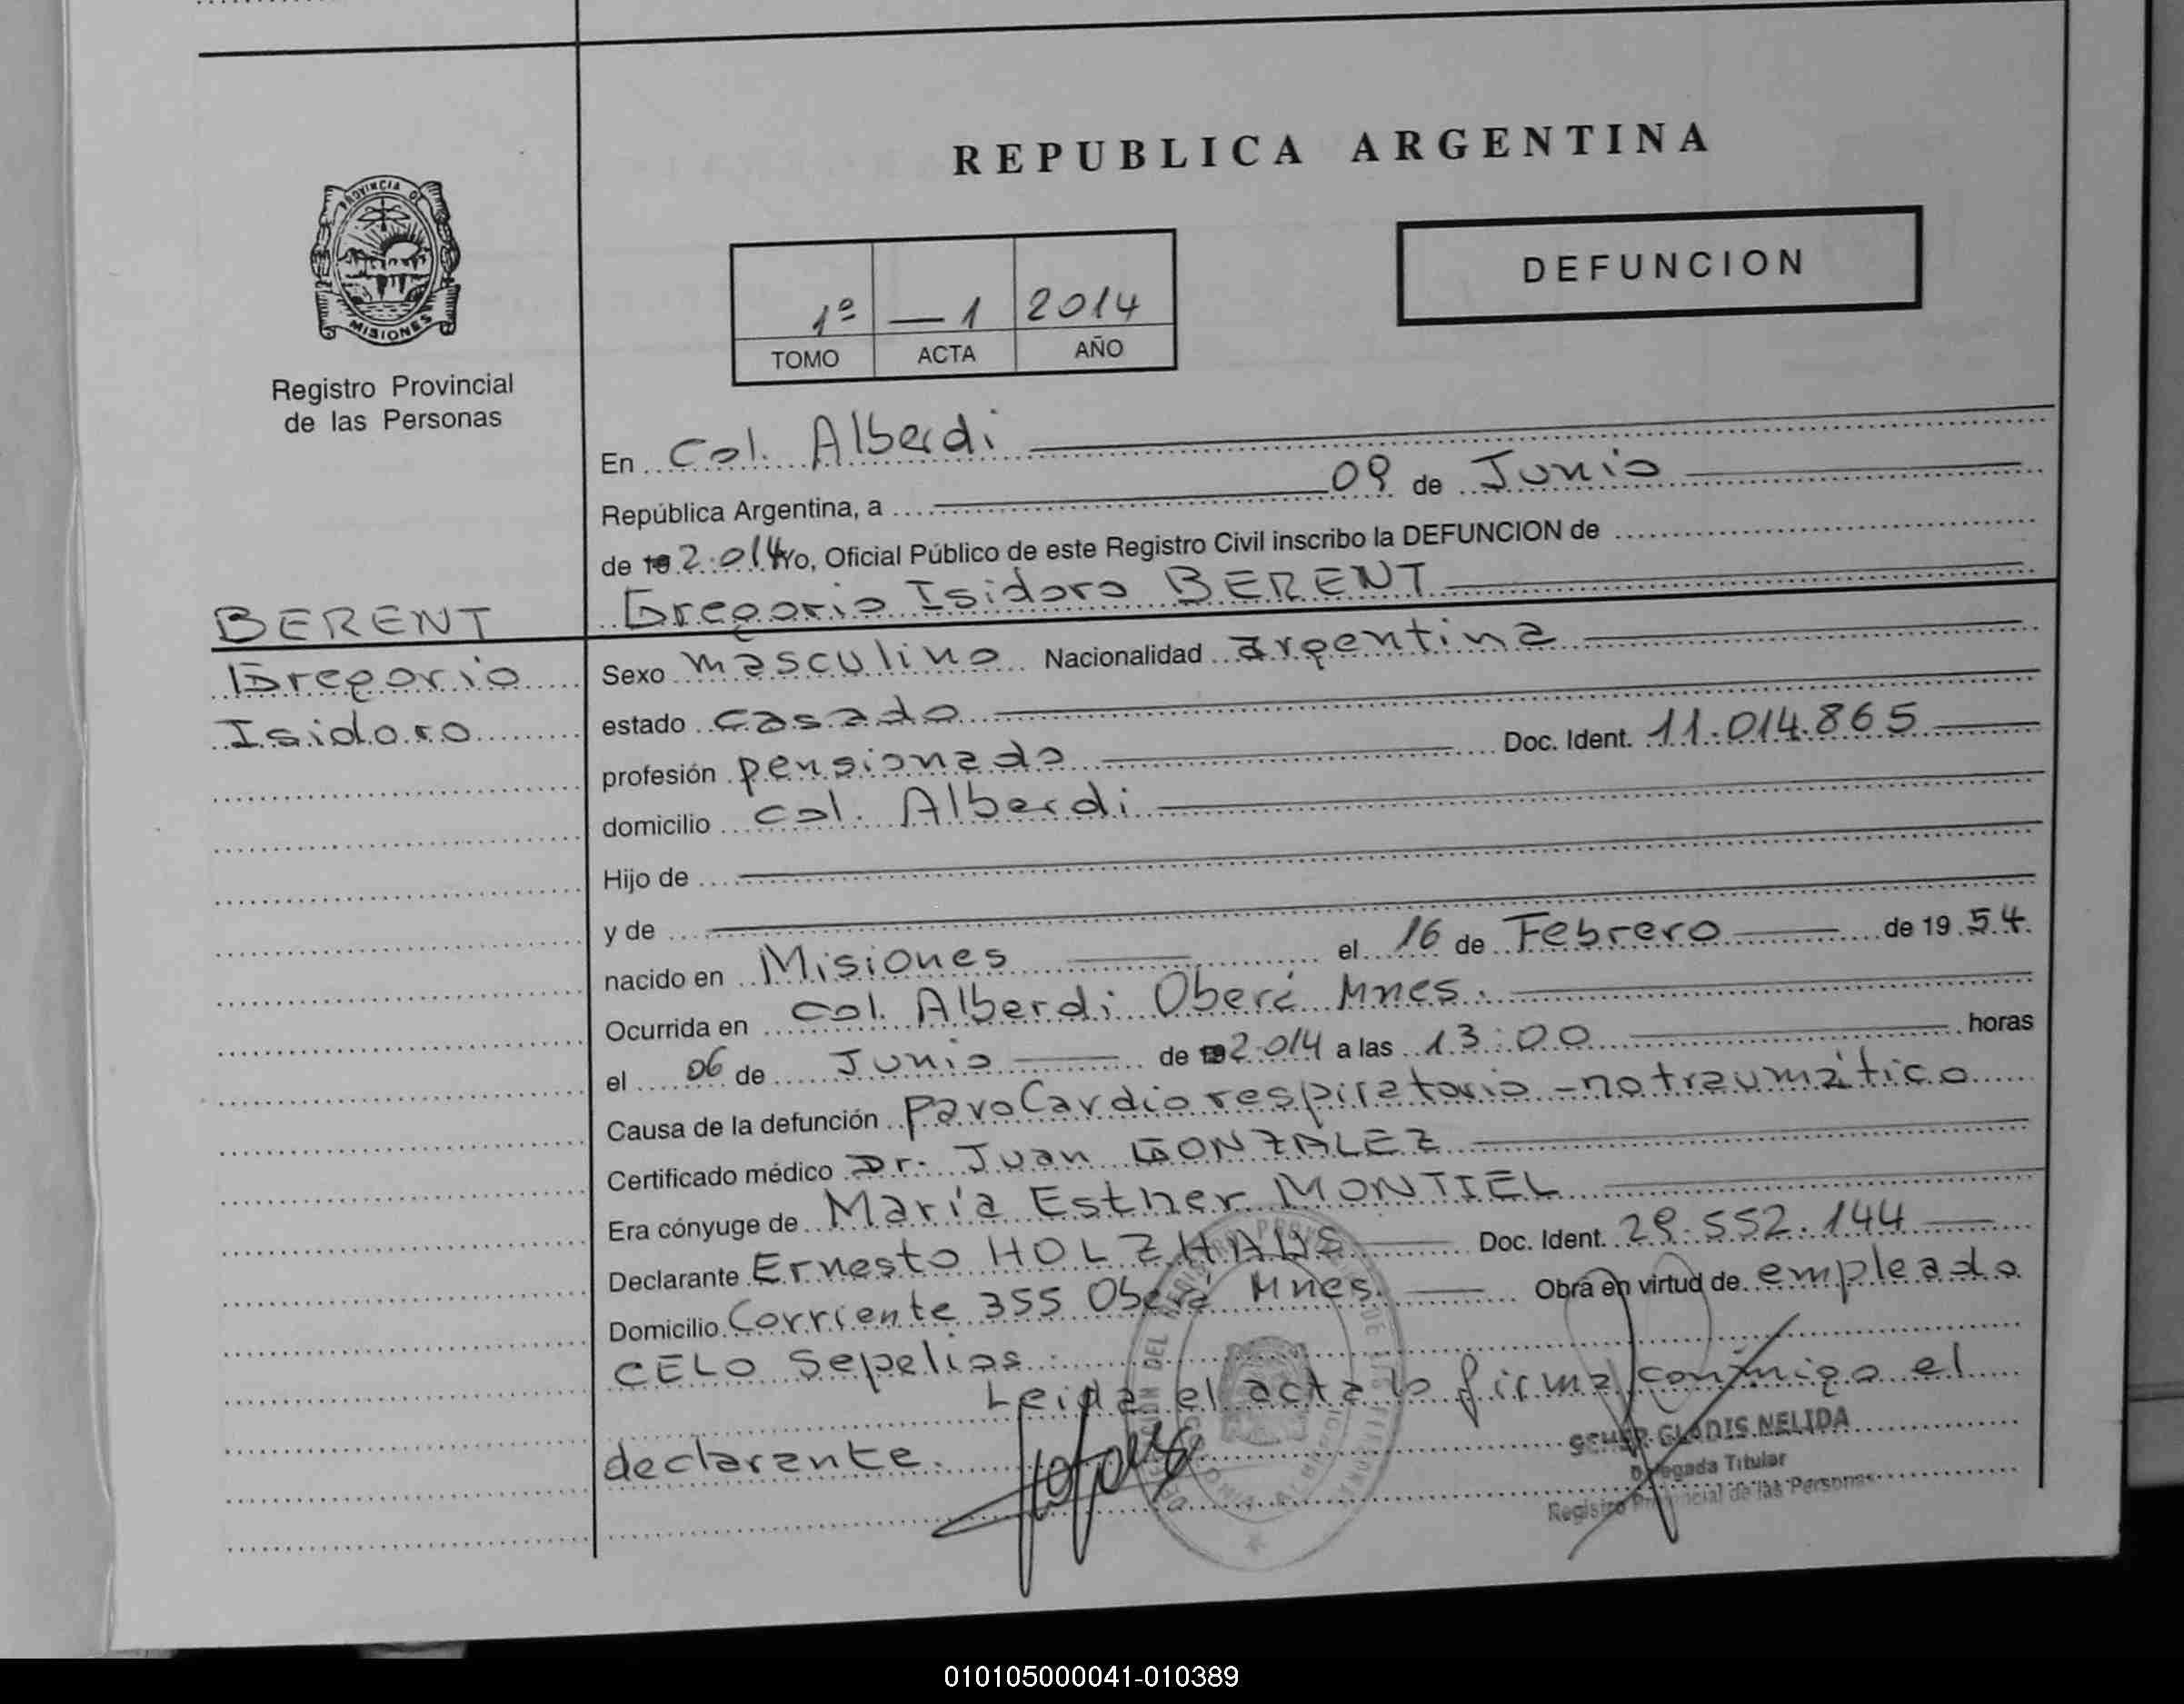 REPUBLICA ARGENTINA
PROVINCIA DE
MISIONES
Registro Provincial
de las Personas
1º — 1 2014
TOMO ACTA AÑO
DEFUNCION
En Col. Alberdi
República Argentina, a 09 de Junio
de 19 2.014 Yo, Oficial Público de este Registro Civil inscribo la DEFUNCION de
Gregorio Isidoro BERENT
BERENT
Gregorio
Isidoro
Sexo masculino Nacionalidad argentina
estado casado
profesión pensionado Doc. Ident. 11.014.865
domicilio Col. Alberdi
Hijo de
y de
nacido en Misiones el 16 de Febrero de 19 54.
Ocurrida en Col. Alberdi Oberá Mnes.
el 06 de Junio de 19 2.014 a las 13:00 horas
Causa de la defunción Paro Cardio respiratorio - no traumático
Certificado médico Dr. Juan GONZALEZ
Era cónyuge de María Esther MONTIEL
Declarante Ernesto HOLZHAUS Doc. Ident. 29.552.144
Domicilio Corriente 355 Oberá Mnes. Obra en virtud de empleado
CELO Sepelios.
Leida el acta lo firma conmigo el
declarante.
GLADIS NELIDA
Delegada Titular
Registro Provincial de las Personas
010105000041-010389